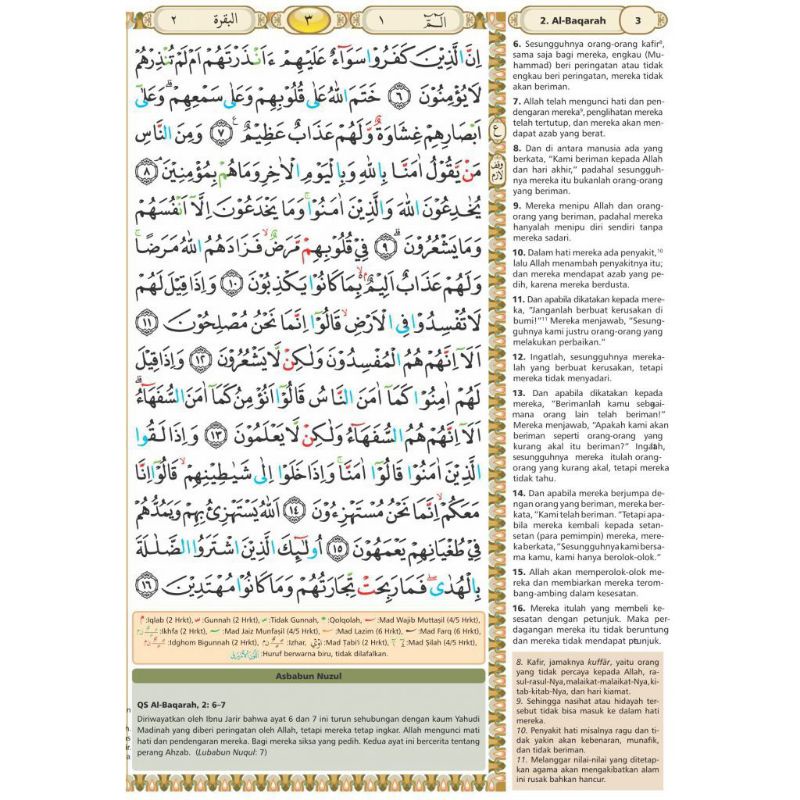 البقرة ٢
٣
الۤمّۤ ١
2. Al-Baqarah
3
اِنَّ الَّذِيْنَ كَفَرُوْا سَوَاۤءٌ عَلَيْهِمْ ءَاَنْذَرْتَهُمْ اَمْ لَمْ تُنْذِرْهُمْ
لَا يُؤْمِنُوْنَ ٦ خَتَمَ اللّٰهُ عَلٰى قُلُوْبِهِمْ وَعَلٰى سَمْعِهِمْ ۗ وَعَلٰٓى
اَبْصَارِهِمْ غِشَاوَةٌ وَّلَهُمْ عَذَابٌ عَظِيْمٌ ٧ ࣖ وَمِنَ النَّاسِ
مَنْ يَّقُوْلُ اٰمَنَّا بِاللّٰهِ وَبِالْيَوْمِ الْاٰخِرِ وَمَا هُمْ بِمُؤْمِنِيْنَۘ ٨
يُخٰدِعُوْنَ اللّٰهَ وَالَّذِيْنَ اٰمَنُوْا ۚ وَمَا يَخْدَعُوْنَ اِلَّآ اَنْفُسَهُمْ
وَمَا يَشْعُرُوْنَۗ ٩ فِيْ قُلُوْبِهِمْ مَّرَضٌۙ فَزَادَهُمُ اللّٰهُ مَرَضًاۚ
وَلَهُمْ عَذَابٌ اَلِيْمٌ ۢ ەۙ بِمَا كَانُوْا يَكْذِبُوْنَ ١٠ وَاِذَا قِيْلَ لَهُمْ
لَا تُفْسِدُوْا فِى الْاَرْضِۙ قَالُوْٓا اِنَّمَا نَحْنُ مُصْلِحُوْنَ ١١
اَلَآ اِنَّهُمْ هُمُ الْمُفْسِدُوْنَ وَلٰكِنْ لَّا يَشْعُرُوْنَ ١٢ وَاِذَا قِيْلَ
لَهُمْ اٰمِنُوْا كَمَآ اٰمَنَ النَّاسُ قَالُوْٓا اَنُؤْمِنُ كَمَآ اٰمَنَ السُّفَهَاۤءُ ۗ
اَلَآ اِنَّهُمْ هُمُ السُّفَهَاۤءُ وَلٰكِنْ لَّا يَعْلَمُوْنَ ١٣ وَاِذَا لَقُوا
الَّذِيْنَ اٰمَنُوْا قَالُوْٓا اٰمَنَّا ۚ وَاِذَا خَلَوْا اِلٰى شَيٰطِيْنِهِمْ ۙ قَالُوْٓا اِنَّا
مَعَكُمْ ۙ اِنَّمَا نَحْنُ مُسْتَهْزِءُوْنَ ١٤ اَللّٰهُ يَسْتَهْزِئُ بِهِمْ وَيَمُدُّهُمْ
فِيْ طُغْيَانِهِمْ يَعْمَهُوْنَ ١٥ اُولٰۤىِٕكَ الَّذِيْنَ اشْتَرَوُا الضَّلٰلَةَ
بِالْهُدٰىۖ فَمَا رَبِحَتْ تِّجَارَتُهُمْ وَمَا كَانُوْا مُهْتَدِيْنَ ١٦
ع
وقف لازم
:Iqlab (2 Hrkt), :Gunnah (2 Hrkt), :Tidak Gunnah, :Qolqolah, :Mad Wajib Muttasil (4/5 Hrkt),
:Ikhfa (2 Hrkt), :Mad Jaiz Munfasil (4/5 Hrkt), :Mad Lazim (6 Hrkt), :Mad Farq (6 Hrkt),
:Idghom Bigunnah (2 Hrkt), :Izhar, :Mad Tabi'i (2 Hrkt), :Mad Silah (4/5 Hrkt),
:Huruf berwarna biru, tidak dilafalkan.
Asbabun Nuzul
QS Al-Baqarah, 2: 6–7
Diriwayatkan oleh Ibnu Jarir bahwa ayat 6 dan 7 ini turun sehubungan dengan kaum Yahudi
Madinah yang diberi peringatan oleh Allah, tetapi mereka tetap ingkar. Allah mengunci mati
hati dan pendengaran mereka. Bagi mereka siksa yang pedih. Kedua ayat ini bercerita tentang
perang Ahzab. (Lubabun Nuqul: 7)
6. Sesungguhnya orang-orang kafir⁸,
sama saja bagi mereka, engkau (Mu-
hammad) beri peringatan atau tidak
engkau beri peringatan, mereka tidak
akan beriman.
7. Allah telah mengunci hati dan pen-
dengaran mereka⁹, penglihatan mereka
telah tertutup, dan mereka akan men-
dapat azab yang berat.
8. Dan di antara manusia ada yang
berkata, "Kami beriman kepada Allah
dan hari akhir," padahal sesungguh-
nya mereka itu bukanlah orang-orang
yang beriman.
9. Mereka menipu Allah dan orang-
orang yang beriman, padahal mereka
hanyalah menipu diri sendiri tanpa
mereka sadari.
10. Dalam hati mereka ada penyakit,¹⁰
lalu Allah menambah penyakitnya itu;
dan mereka mendapat azab yang pe-
dih, karena mereka berdusta.
11. Dan apabila dikatakan kepada mere-
ka, "Janganlah berbuat kerusakan di
bumi!"¹¹ Mereka menjawab, "Sesung-
guhnya kami justru orang-orang yang
melakukan perbaikan."
12. Ingatlah, sesungguhnya mereka-
lah yang berbuat kerusakan, tetapi
mereka tidak menyadari.
13. Dan apabila dikatakan kepada
mereka, "Berimanlah kamu sebagai-
mana orang lain telah beriman!"
Mereka menjawab, "Apakah kami akan
beriman seperti orang-orang yang
kurang akal itu beriman?" Ingatlah,
sesungguhnya mereka itulah orang-
orang yang kurang akal, tetapi mereka
tidak tahu.
14. Dan apabila mereka berjumpa de-
ngan orang yang beriman, mereka ber-
kata, "Kami telah beriman. "Tetapi apa-
bila mereka kembali kepada setan-
setan (para pemimpin) mereka, mere-
ka berkata, "Sesungguhnya kami bersa-
ma kamu, kami hanya berolok-olok."
15. Allah akan memperolok-olok me-
reka dan membiarkan mereka terom-
bang-ambing dalam kesesatan.
16. Mereka itulah yang membeli ke-
sesatan dengan petunjuk. Maka per-
dagangan mereka itu tidak beruntung
dan mereka tidak mendapat petunjuk.
8. Kafir, jamaknya kuffār, yaitu orang
yang tidak percaya kepada Allah, ra-
sul-rasul-Nya, malaikat-malaikat-Nya, ki-
tab-kitab-Nya, dan hari kiamat.
9. Sehingga nasihat atau hidayah ter-
sebut tidak bisa masuk ke dalam hati
mereka.
10. Penyakit hati misalnya ragu dan ti-
dak yakin akan kebenaran, munafik,
dan tidak beriman.
11. Melanggar nilai-nilai yang ditetap-
kan agama akan mengakibatkan alam
ini rusak bahkan hancur.